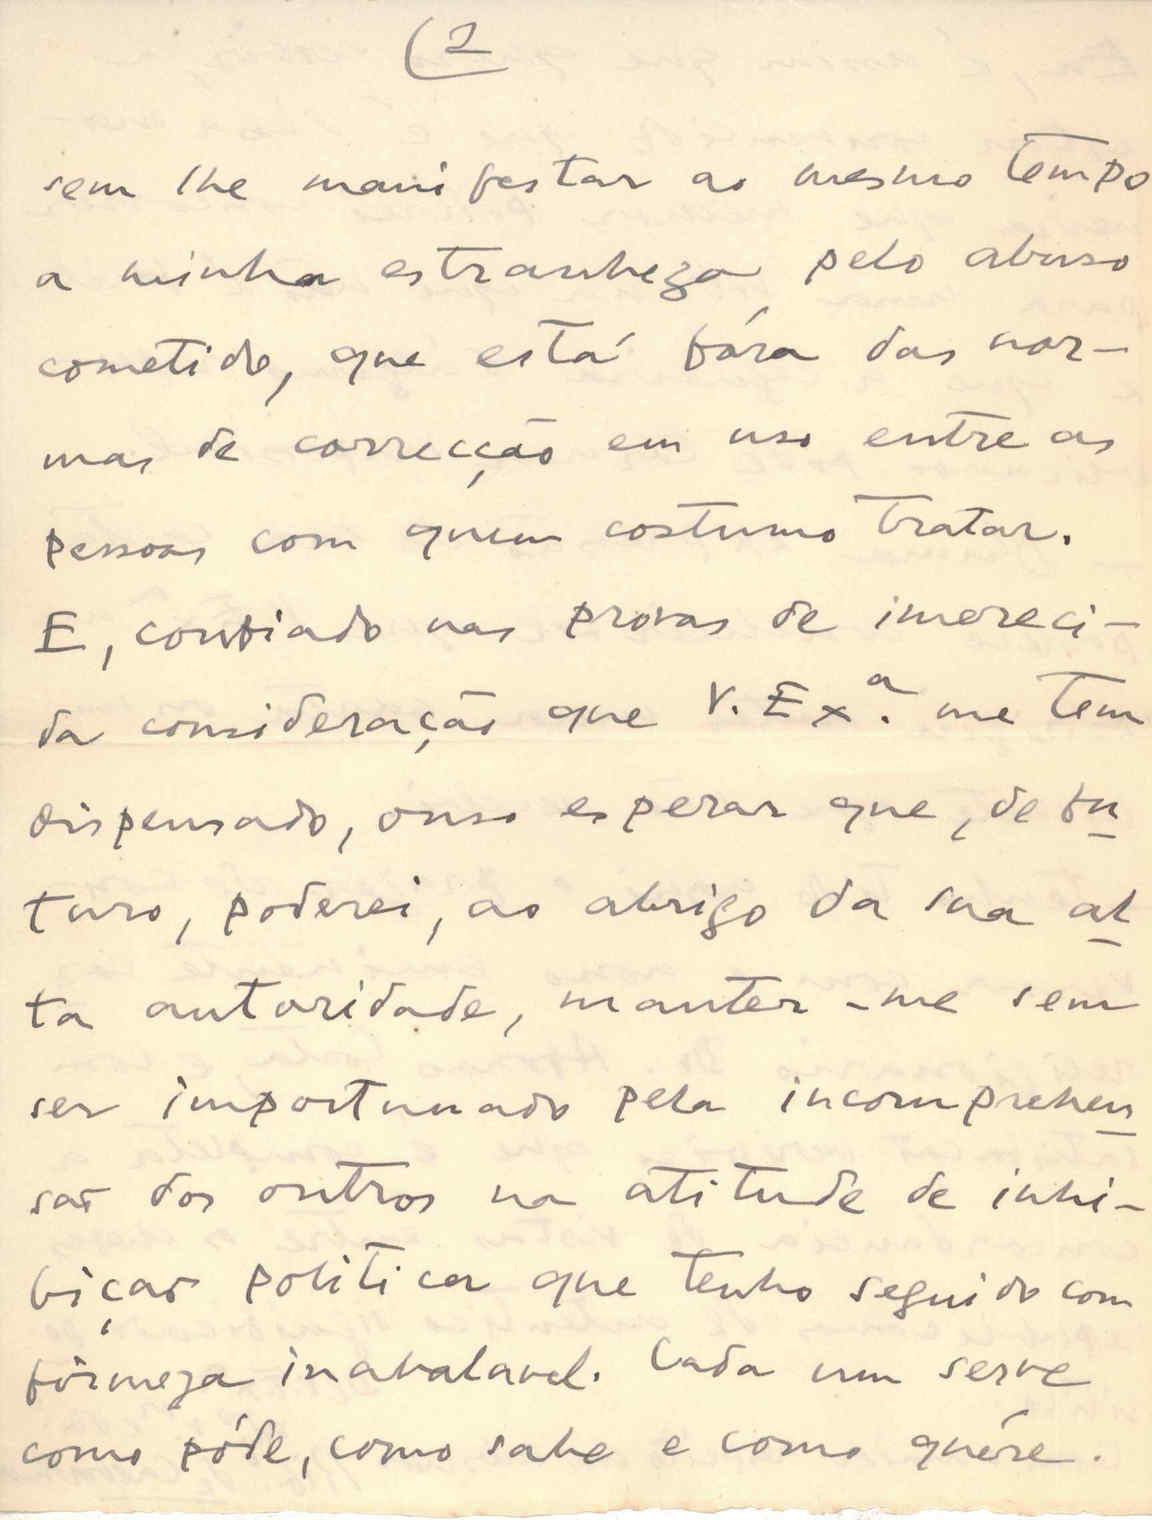 (2
sem lhe manifestar ao mesmo tempo
a minha estranheza pelo abuso
cometido, que está fóra das nor-
mas de correcção em uso entre as
pessoas com quem costumo tratar.
E, confiado nas provas de imereci-
da consideração que V. Exª. me tem
dispensado, ouso esperar que, de fu
turo, poderei, ao abrigo da sua al
ta autoridade, manter-me sem
ser importunado pela incomprehen
são dos outros na atitude de inhi-
bição politica que tenho seguido com
firmeza inabalavel. Cada um serve
como póde, como sabe e como quére.